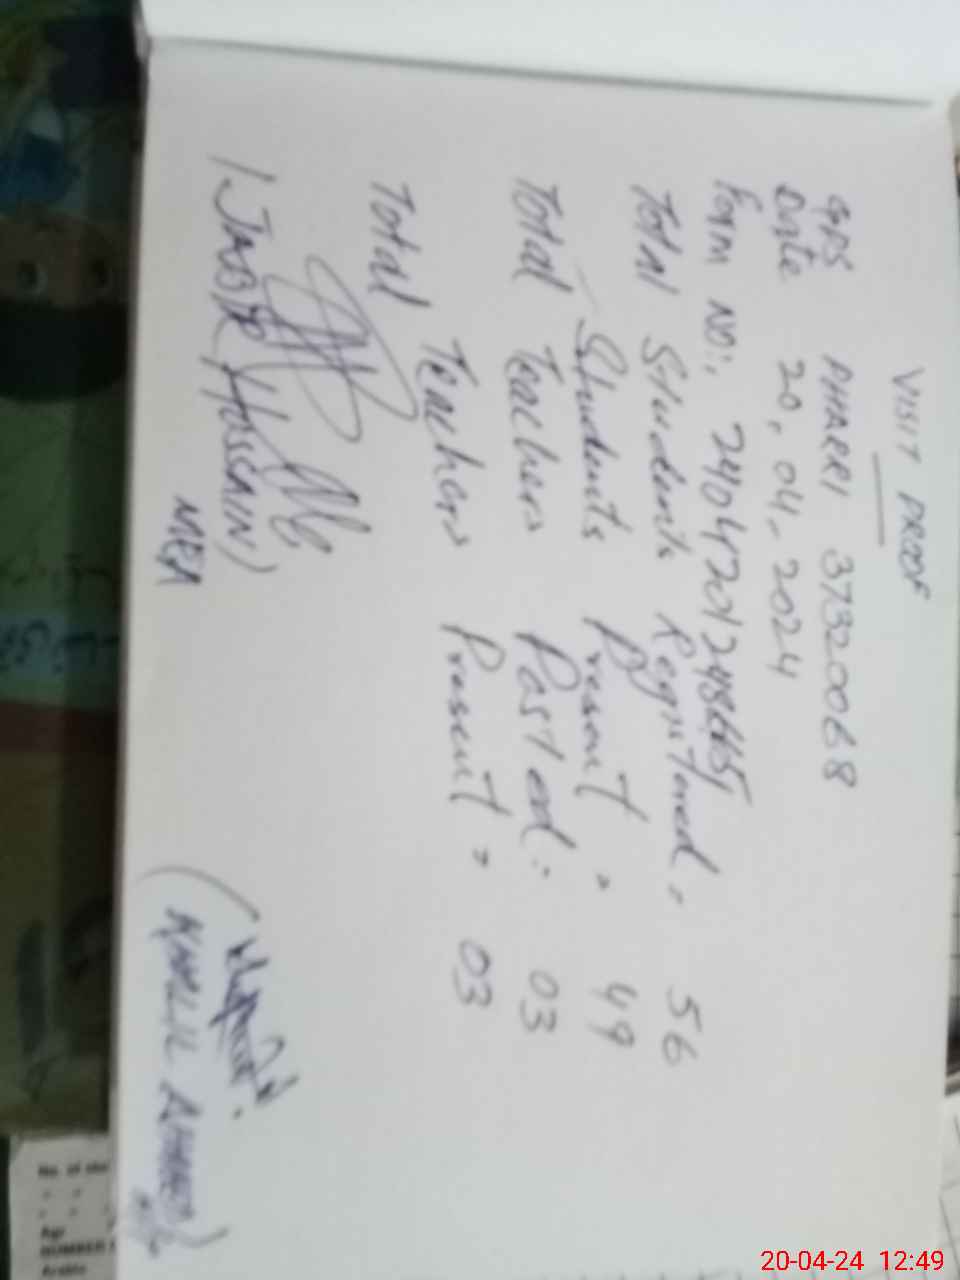 VISIT PROOF
GPS PHARRI 37320068
Date 20.04.2024
Form NO:
Total Students Registered, 56
Total Students Present, 49
Total Teachers Posted: 03
Total Teachers Present, 03
(JABIR HUSSAIN)
MEA
(KHALIL AHMED)
No. of
Age
NUMBER
Arabic
20-04-24 12:49